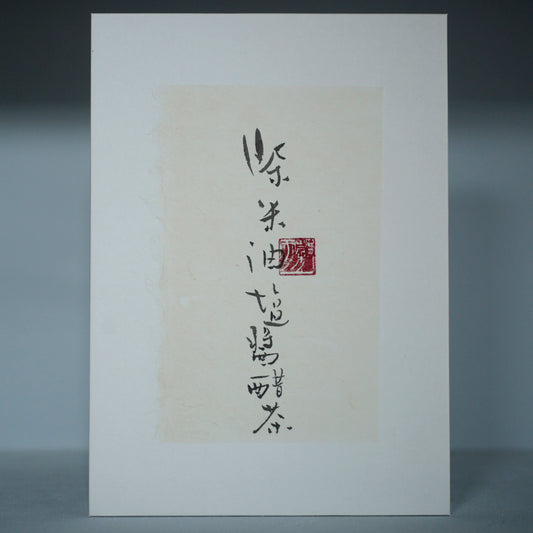 柴米油塩醬醋茶